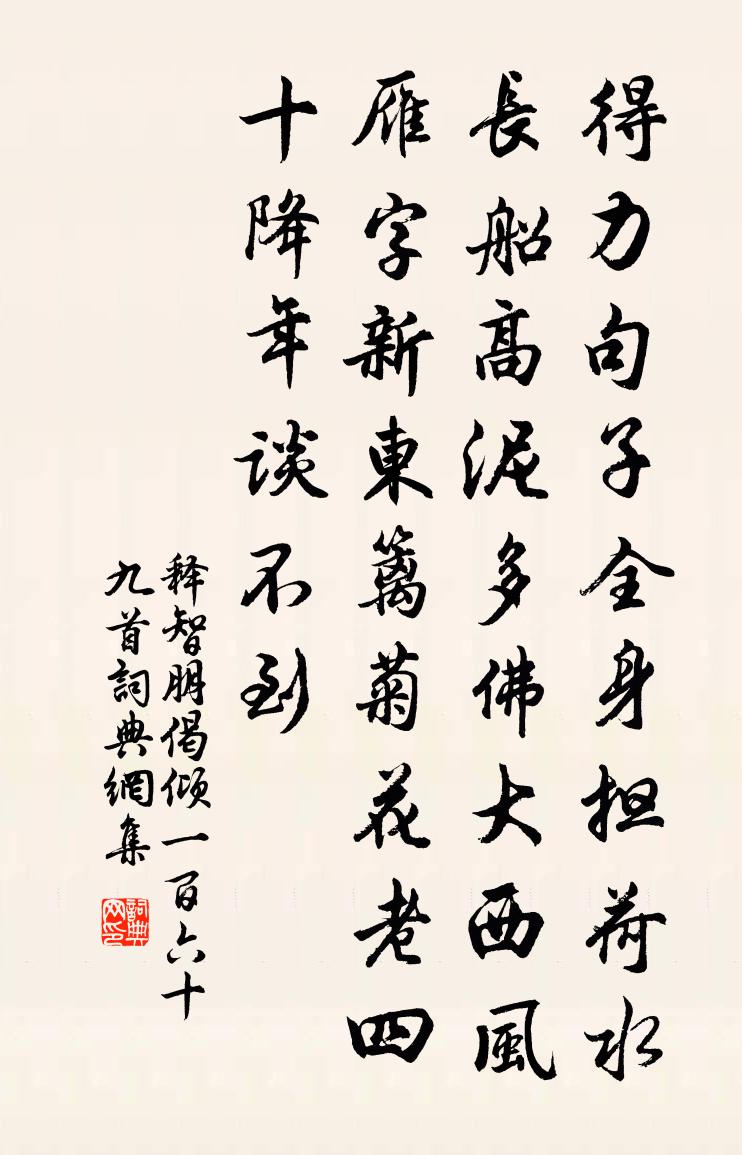 得力句子全身担荷水
長船高泥多佛大西風
雁字新東籬菊花老四
十降年談不到
释智朋偈傾一百六十
九首詞典網集
詞典网印